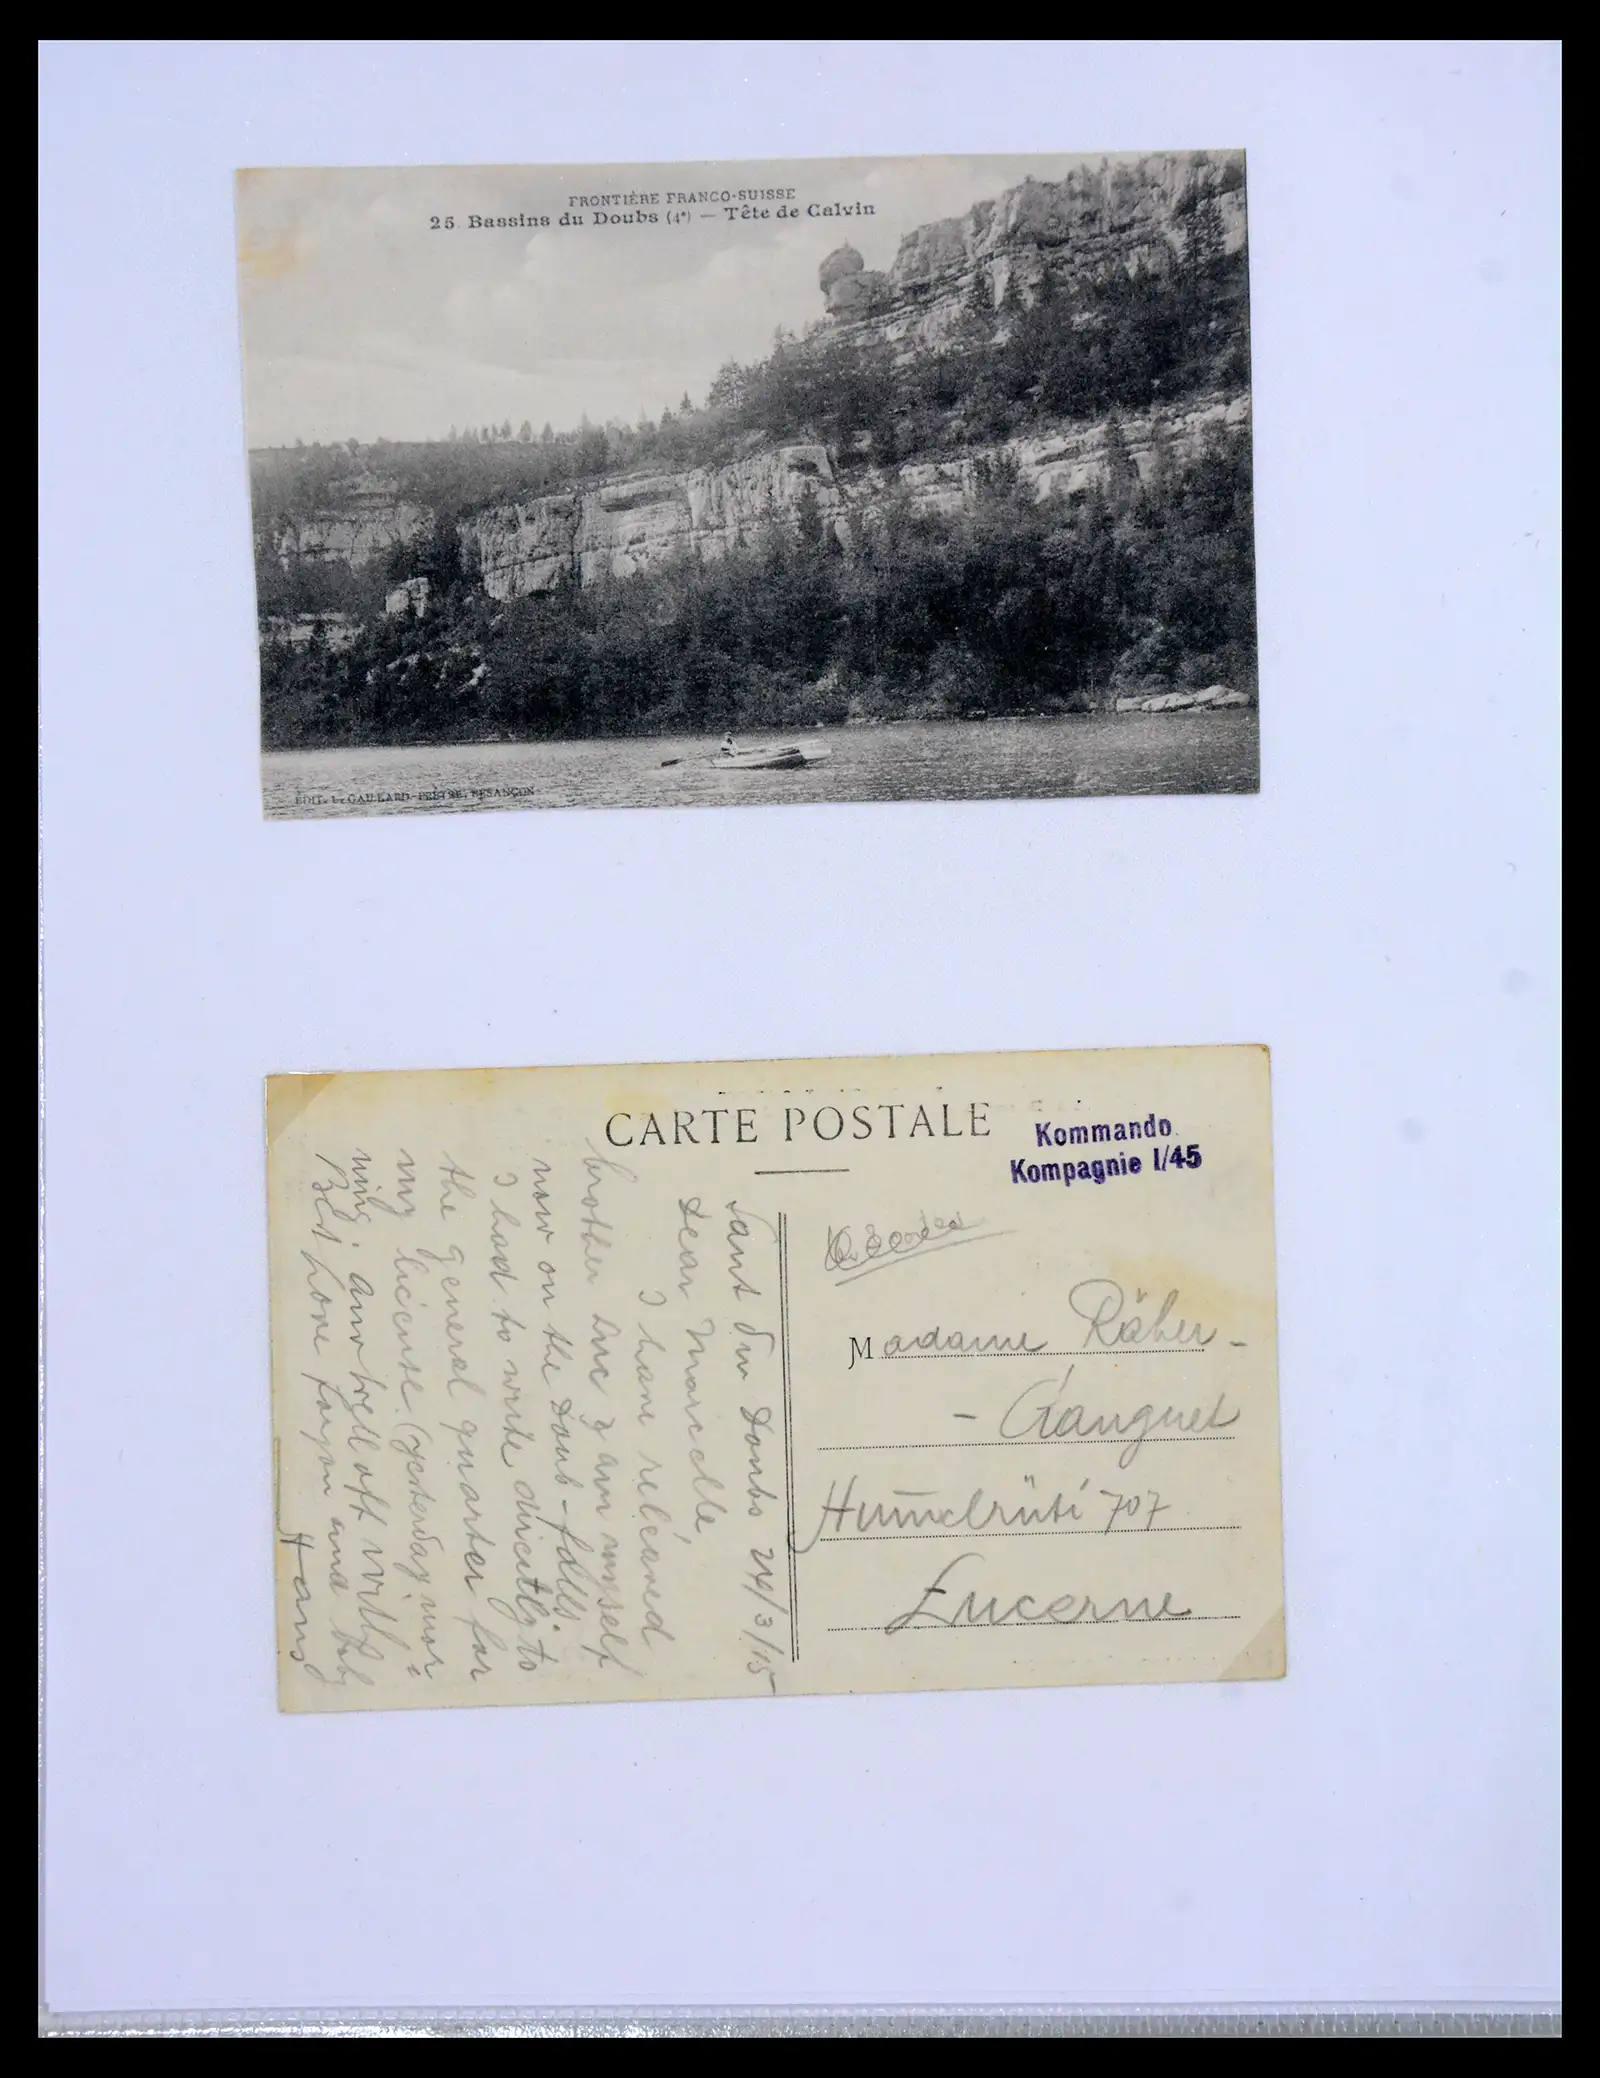 FRONTIÈRE FRANCO-SUISSE
25. Bassins du Doubs (4e) — Tête de Calvin
EDIT. L. GAILLARD-PRÊTRE, BESANÇON
CARTE POSTALE
Kommando
Kompagnie I/45
Madame Räber-
-
Hummelrüti 707
Lucerne
Saut du Doubs 24/3/15
Dear Marcelle
I have released
brother Luc & am myself
now on the Doub-falls.
I had to write directly to
the general quarter for
my license. (yesterday mor
ning) am well oft with
Best love for you and baby
Hans